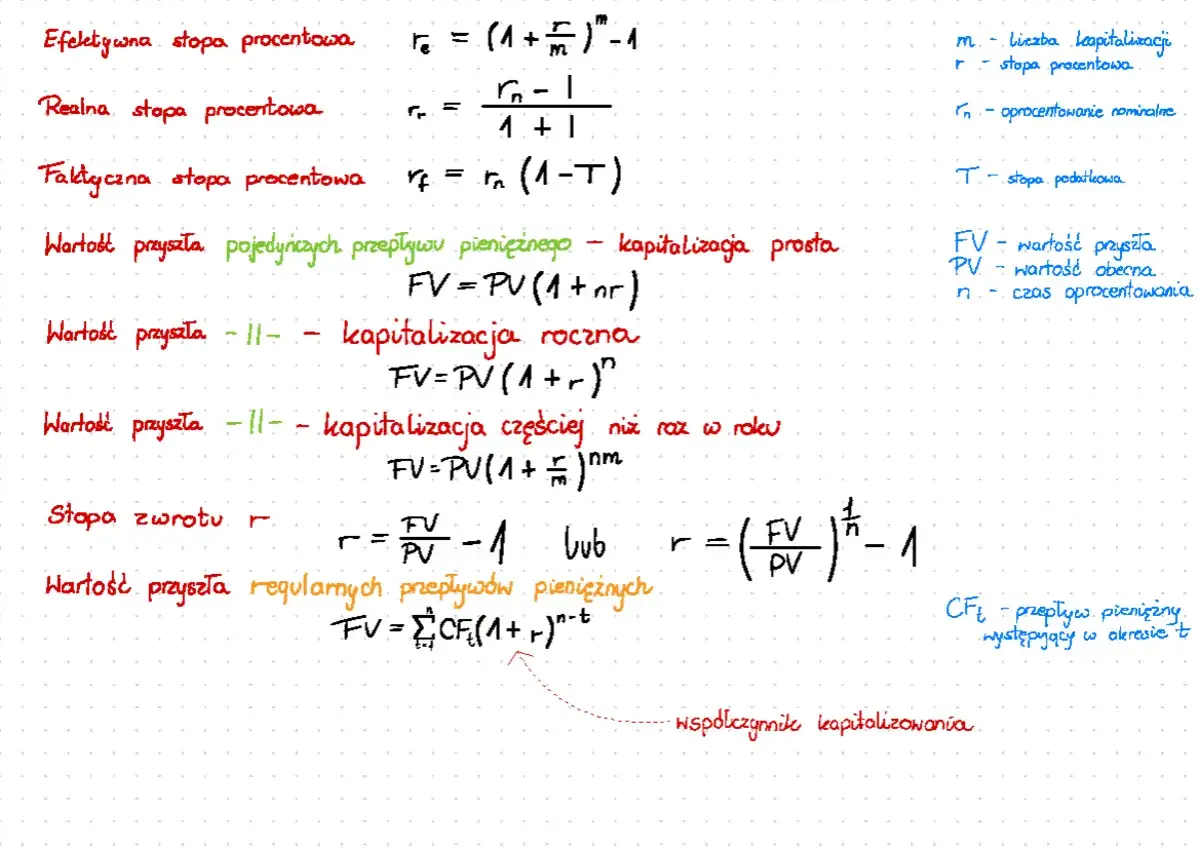 Efektywna stopa procentowa rₑ = (1 + r/m)^m - 1 m - liczba kapitalizacji
r - stopa procentowa
Realna stopa procentowa rᵣ = (rₙ - I)/(1 + I) rₙ - oprocentowanie nominalne
Faktyczna stopa procentowa r_f = rₙ (1 - T) T - stopa podatkowa
Wartość przyszła pojedyńczych przepływu pieniężnego - kapitalizacja prosta FV - wartość przyszła
PV - wartość obecna
FV = PV(1 + nr) n - czas oprocentowania
Wartość przyszła -||- - kapitalizacja roczna
FV = PV(1 + r)^n
Wartość przyszła -||- - kapitalizacja częściej niż raz w roku
FV = PV(1 + r/m)^nm
Stopa zwrotu r r = FV/PV - 1 lub r = (FV/PV)^(1/n) - 1
Wartość przyszła regularnych przepływów pieniężnych
FV = Σ_{t=1}^{n} CFₜ(1 + r)^{n-t} CFₜ - przepływ pieniężny
występujący w okresie t
współczynnik kapitalizowania